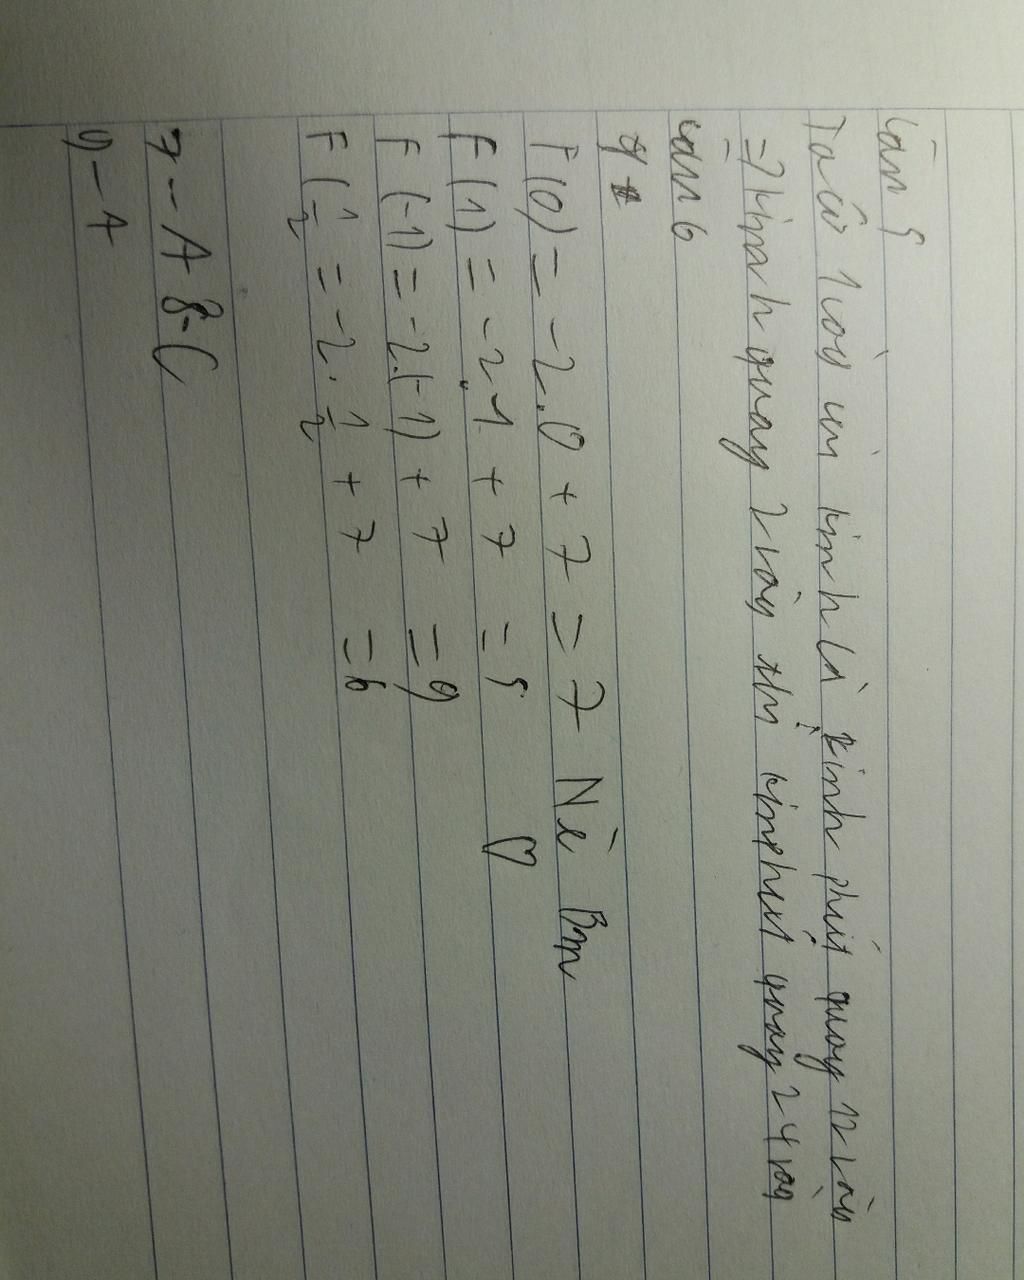 Câu 5
Ta có 1 vòng kim kình là kình phút quay 12 vòng
=> kình h quay 2 vòng thì kim phút quay 24 vòng
câu 6
F(0) = -2.0 + 7 = 7 Nè Bạn
f(1) = -2.1 + 7 = 5 ♡
f(-1) = -2.(-1) + 7 = 9
F(1/2 = -2. 1/2 + 7 = 6
7 - A 8 - C
9 - A